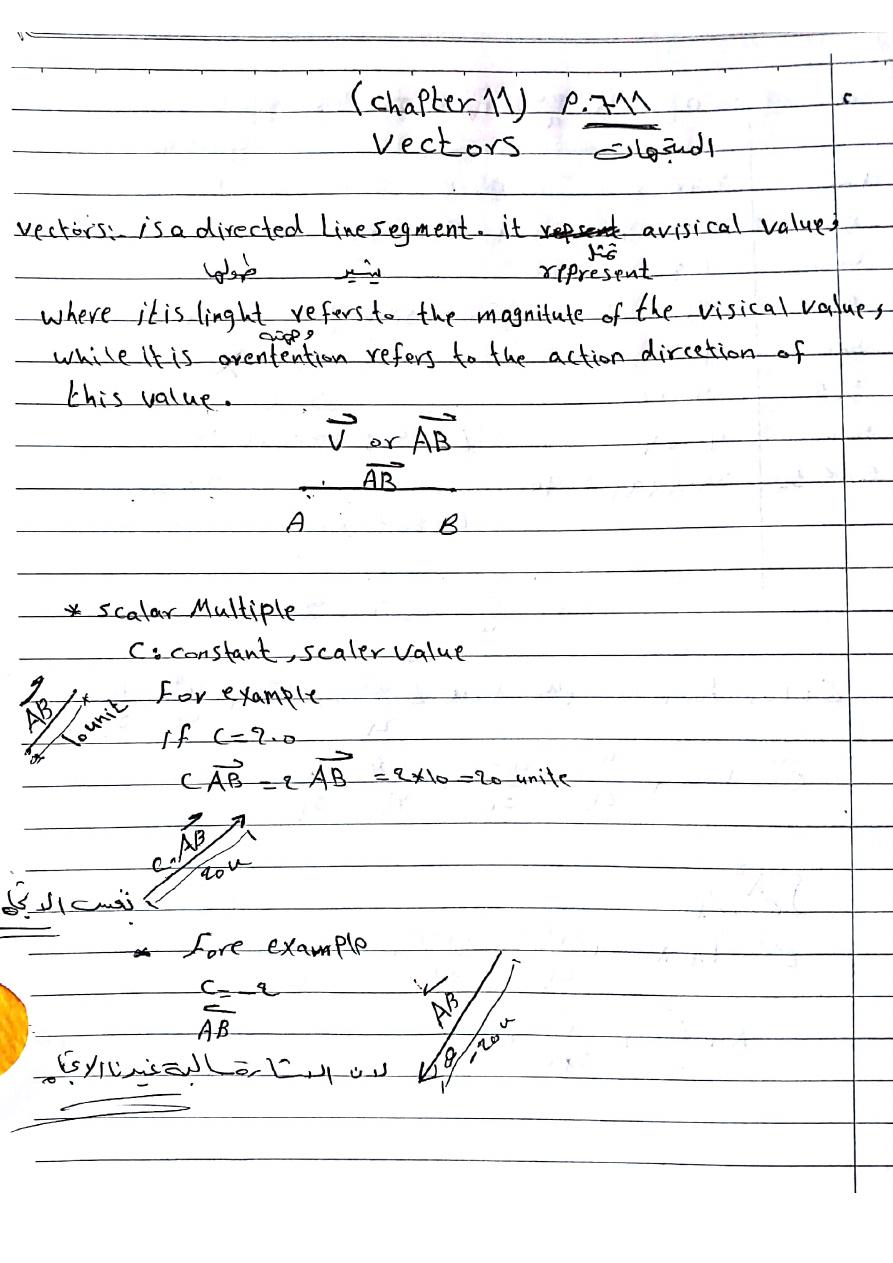 (chapter 11) P.711
Vectors المتجهات
vectors: is a directed Line segment. it avisical value,
طولها يشير تمثل represent
where it is linght refers to the magnitute of the visical values,
وجهته
while it is orentention refers to the action dircetion of
this value.
V or AB
AB
A B
* scalar Multiple
C: constant, scaler value
AB 10 unit For example
If C=2.0
C AB = 2 AB = 2×10 = 20 unite
C. AB
20u
نفس الاتجاه
* Fore example
C = -2
AB
AB
-20u
لان الاشارة سالبة غيرنا الاتجاه